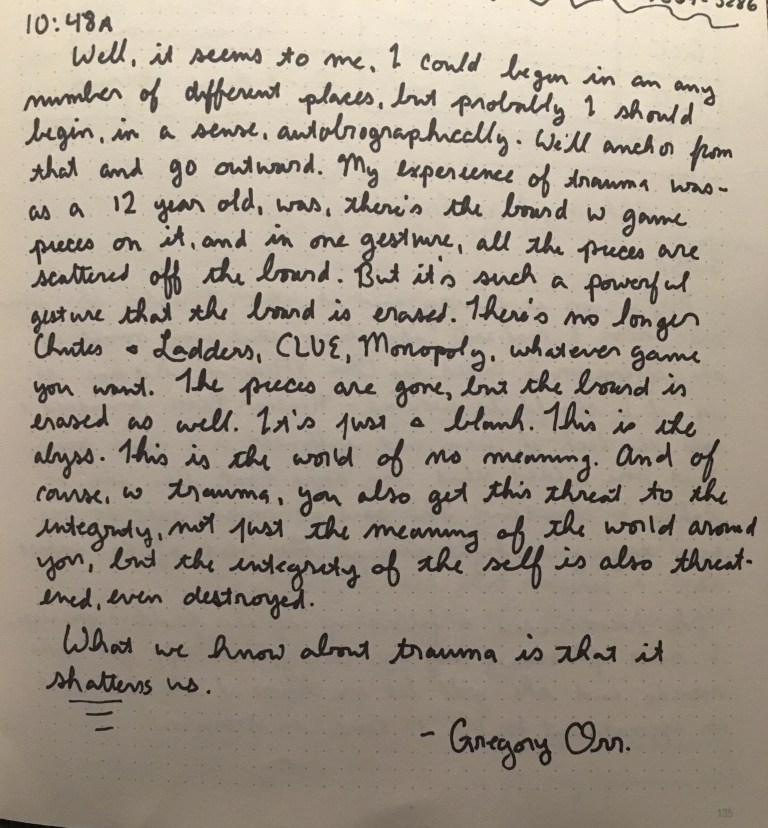 3286
10:48A
Well, it seems to me, I could begin in an any
number of different places, but probably I should
begin, in a sense, autobiographically. We'll anchor from
that and go outward. My experience of trauma was-
as a 12 year old, was, there's the board w game
pieces on it, and in one gesture, all the pieces are
scattered off the board. But it's such a powerful
gesture that the board is erased. There's no longer
Chutes & Ladders, CLUE, Monopoly, whatever game
you want. The pieces are gone, but the board is
erased as well. It's just a blank. This is the
abyss. This is the world of no meaning. And of
course, w trauma, you also get this threat to the
integrity, not just the meaning of the world around
you, but the integrity of the self is also threat-
ened, even destroyed.
What we know about trauma is that it
shatters us.
- Gregory Orr.
135